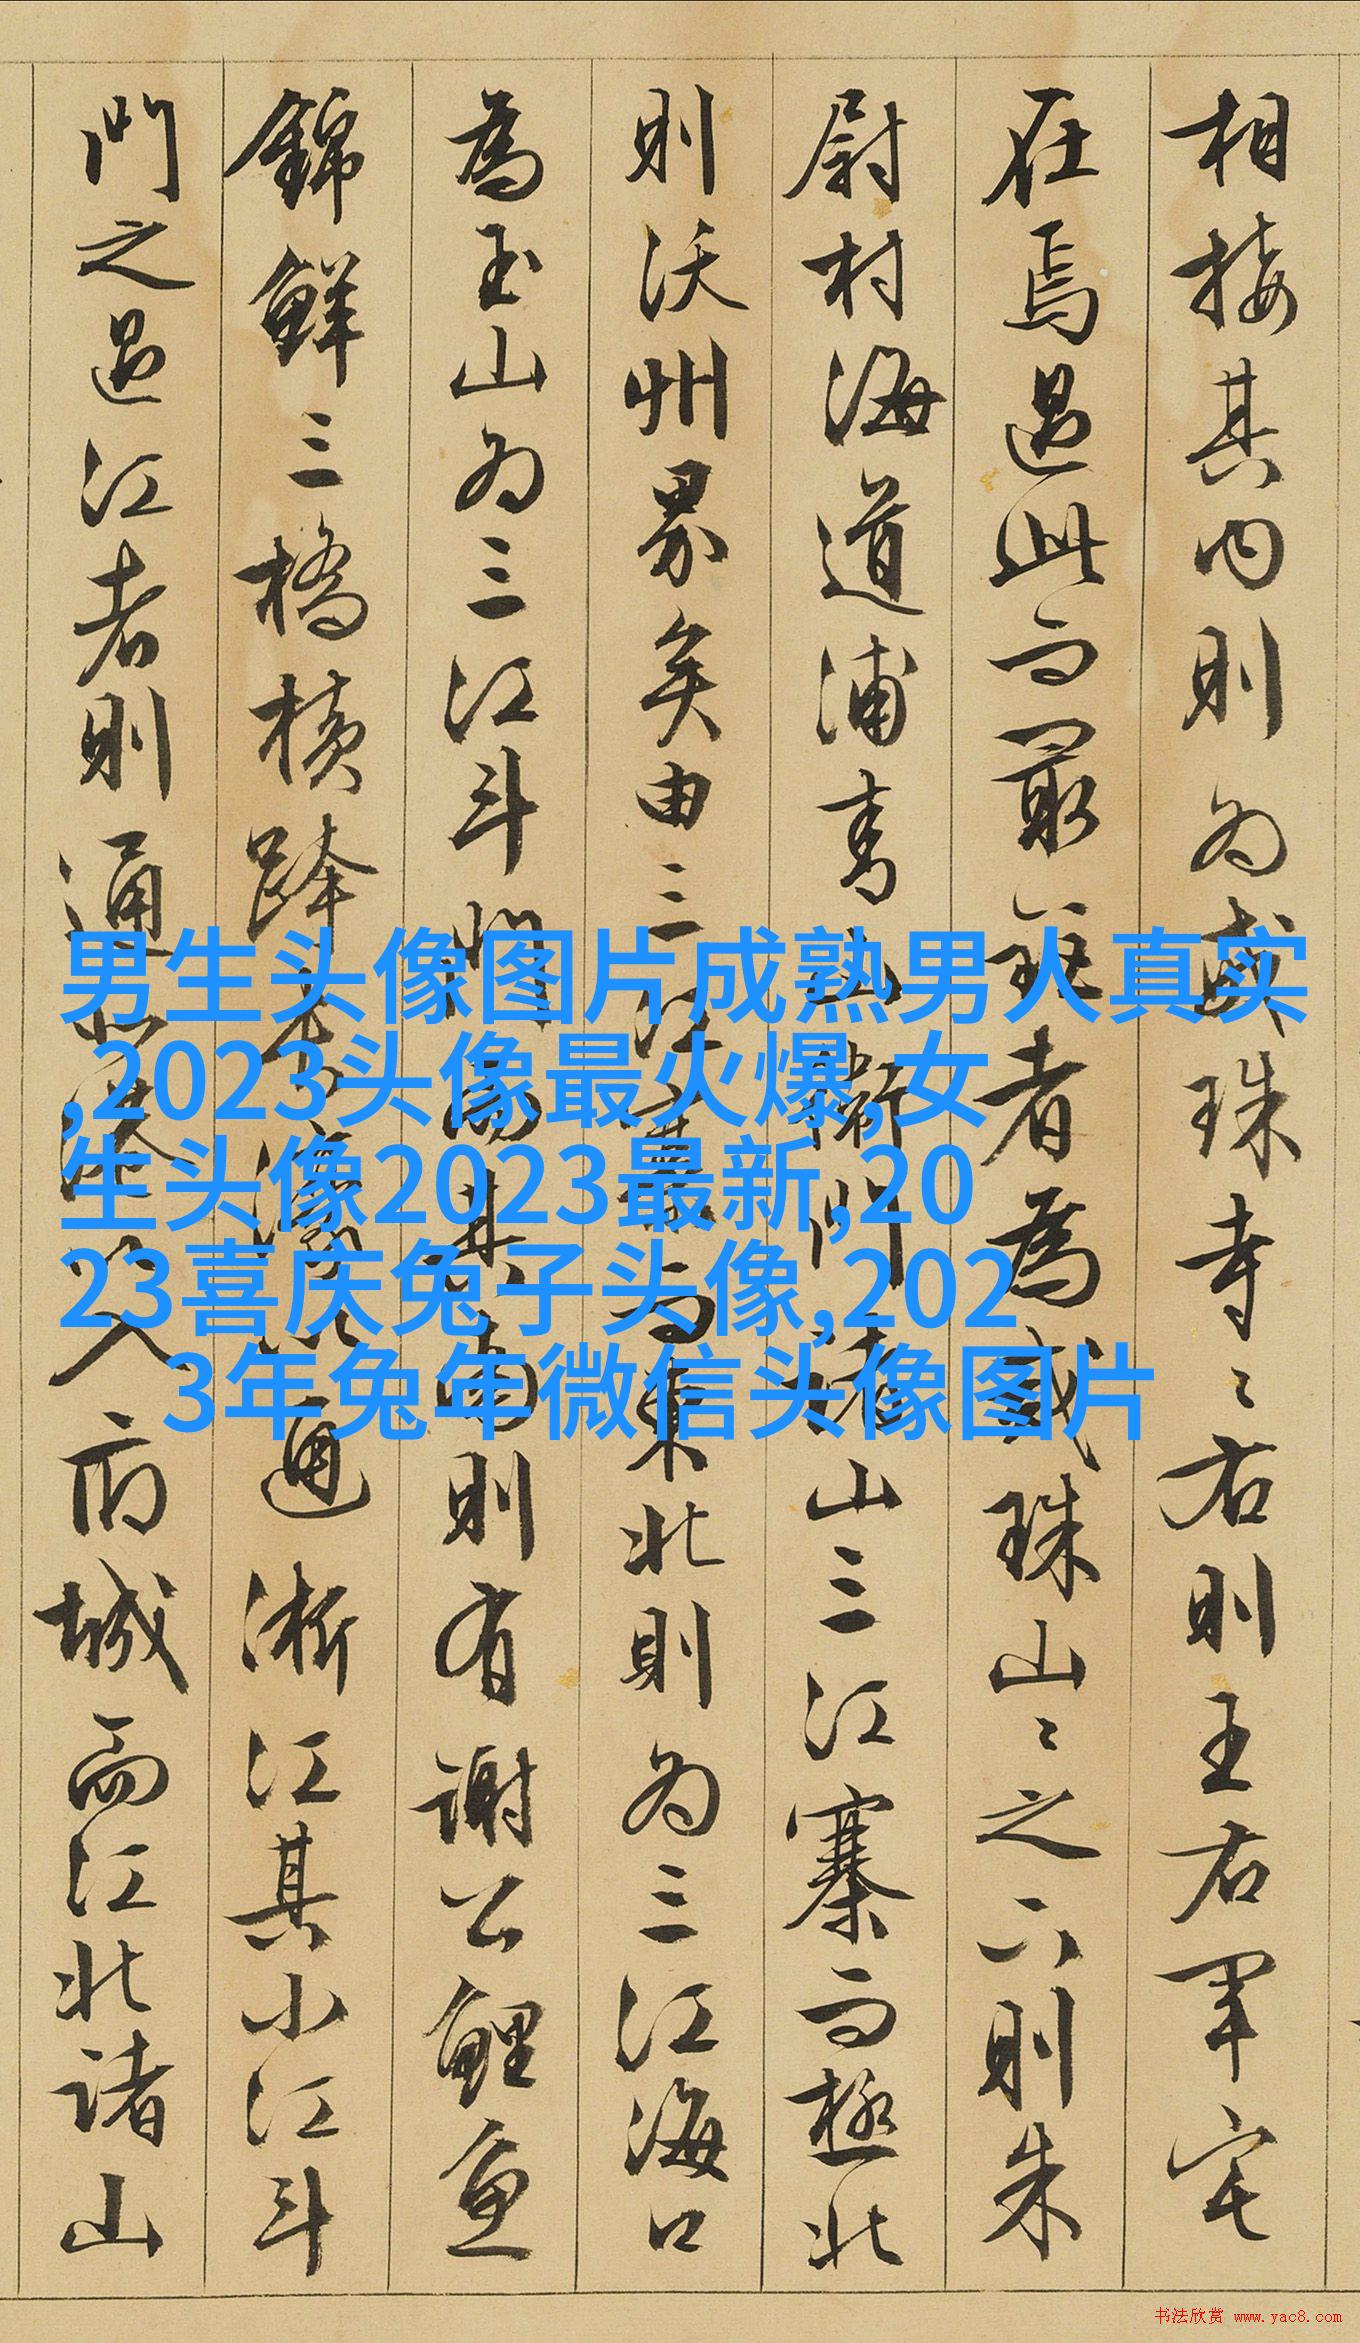 相接其内則为戒珠寺〻右則王右軍宅
在焉過此而最者為戒珠山〻之下則朱
尉村海道浦山三江寨而極北
則沃州界矣由三江東北則为三江海口
為玉山为三江斗則有謝公鯉魚
錦鱗三橋横跨通浙江其小江斗
門之過江者則通入府城而江北諸山
男生头像图片成熟男人真实
,2023头像最火爆,女
生头像2023最新,20
23喜庆兔子头像,202
3年兔年微信头像图片
书法欣赏 www.yac8.com